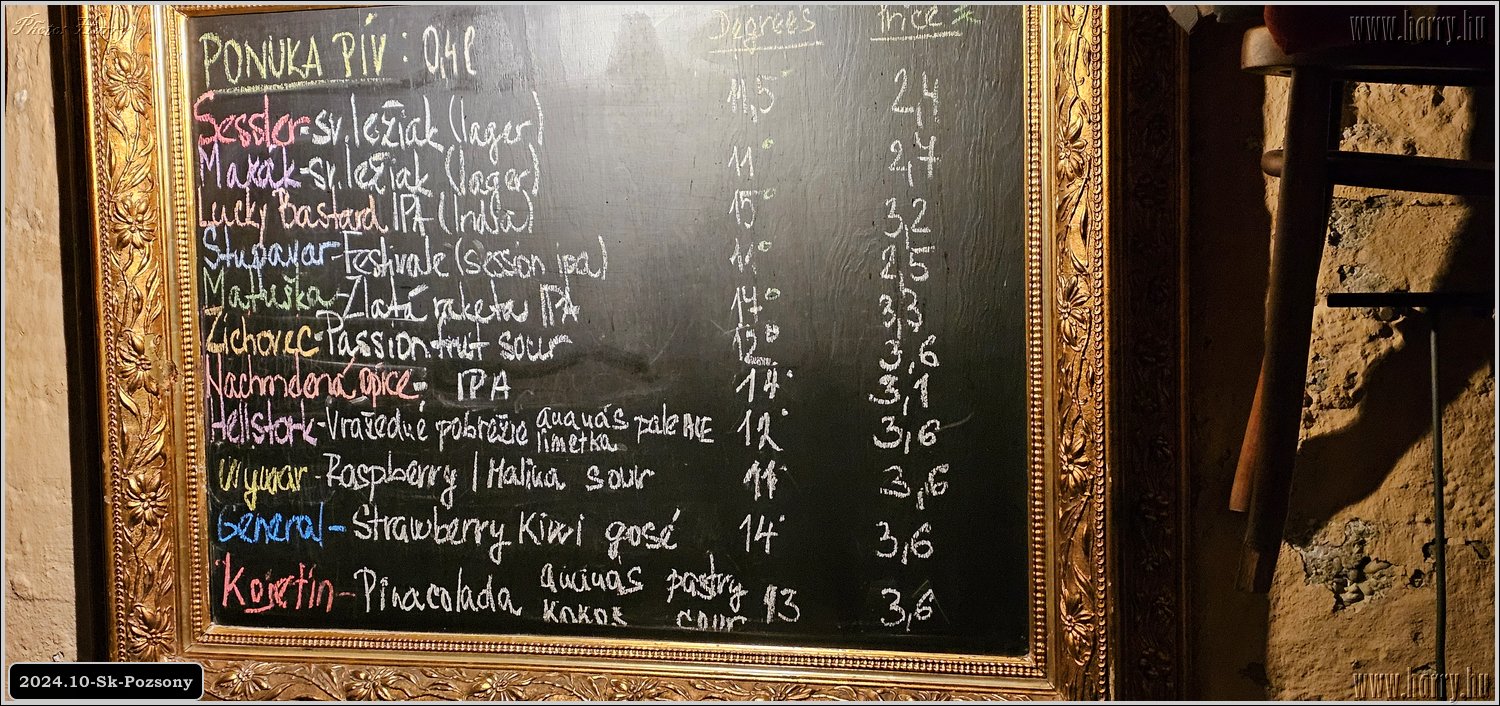 Photo: Harry
www.harry.hu
Degrees Price
PONUKA PÍV: 0,4l
Sessler-sv.ležiak (lager) 11,5° 2,4
Makák-sv.ležiak (lager) 11° 2,7
Lucky Bastard IPA (India) 15° 3,2
Stupavar-Festivale (session ipa) 11° 2,5
Matuška-Zlatá raketa IPA 17° 3,3
Zichovec-Passion fruit sour 12° 3,6
Nachmelená Opice- IPA 14° 3,1
Hellstork-Vražedné pobrežie ananás limetka pale ALE 12° 3,6
Wywar-Raspberry / Malina sour 11° 3,6
General-Strawberry Kiwi gosé 14° 3,6
Kojetín-Pinacolada ananás kokos pastry sour 13 3,6
2024.10-Sk-Pozsony
www.harry.hu